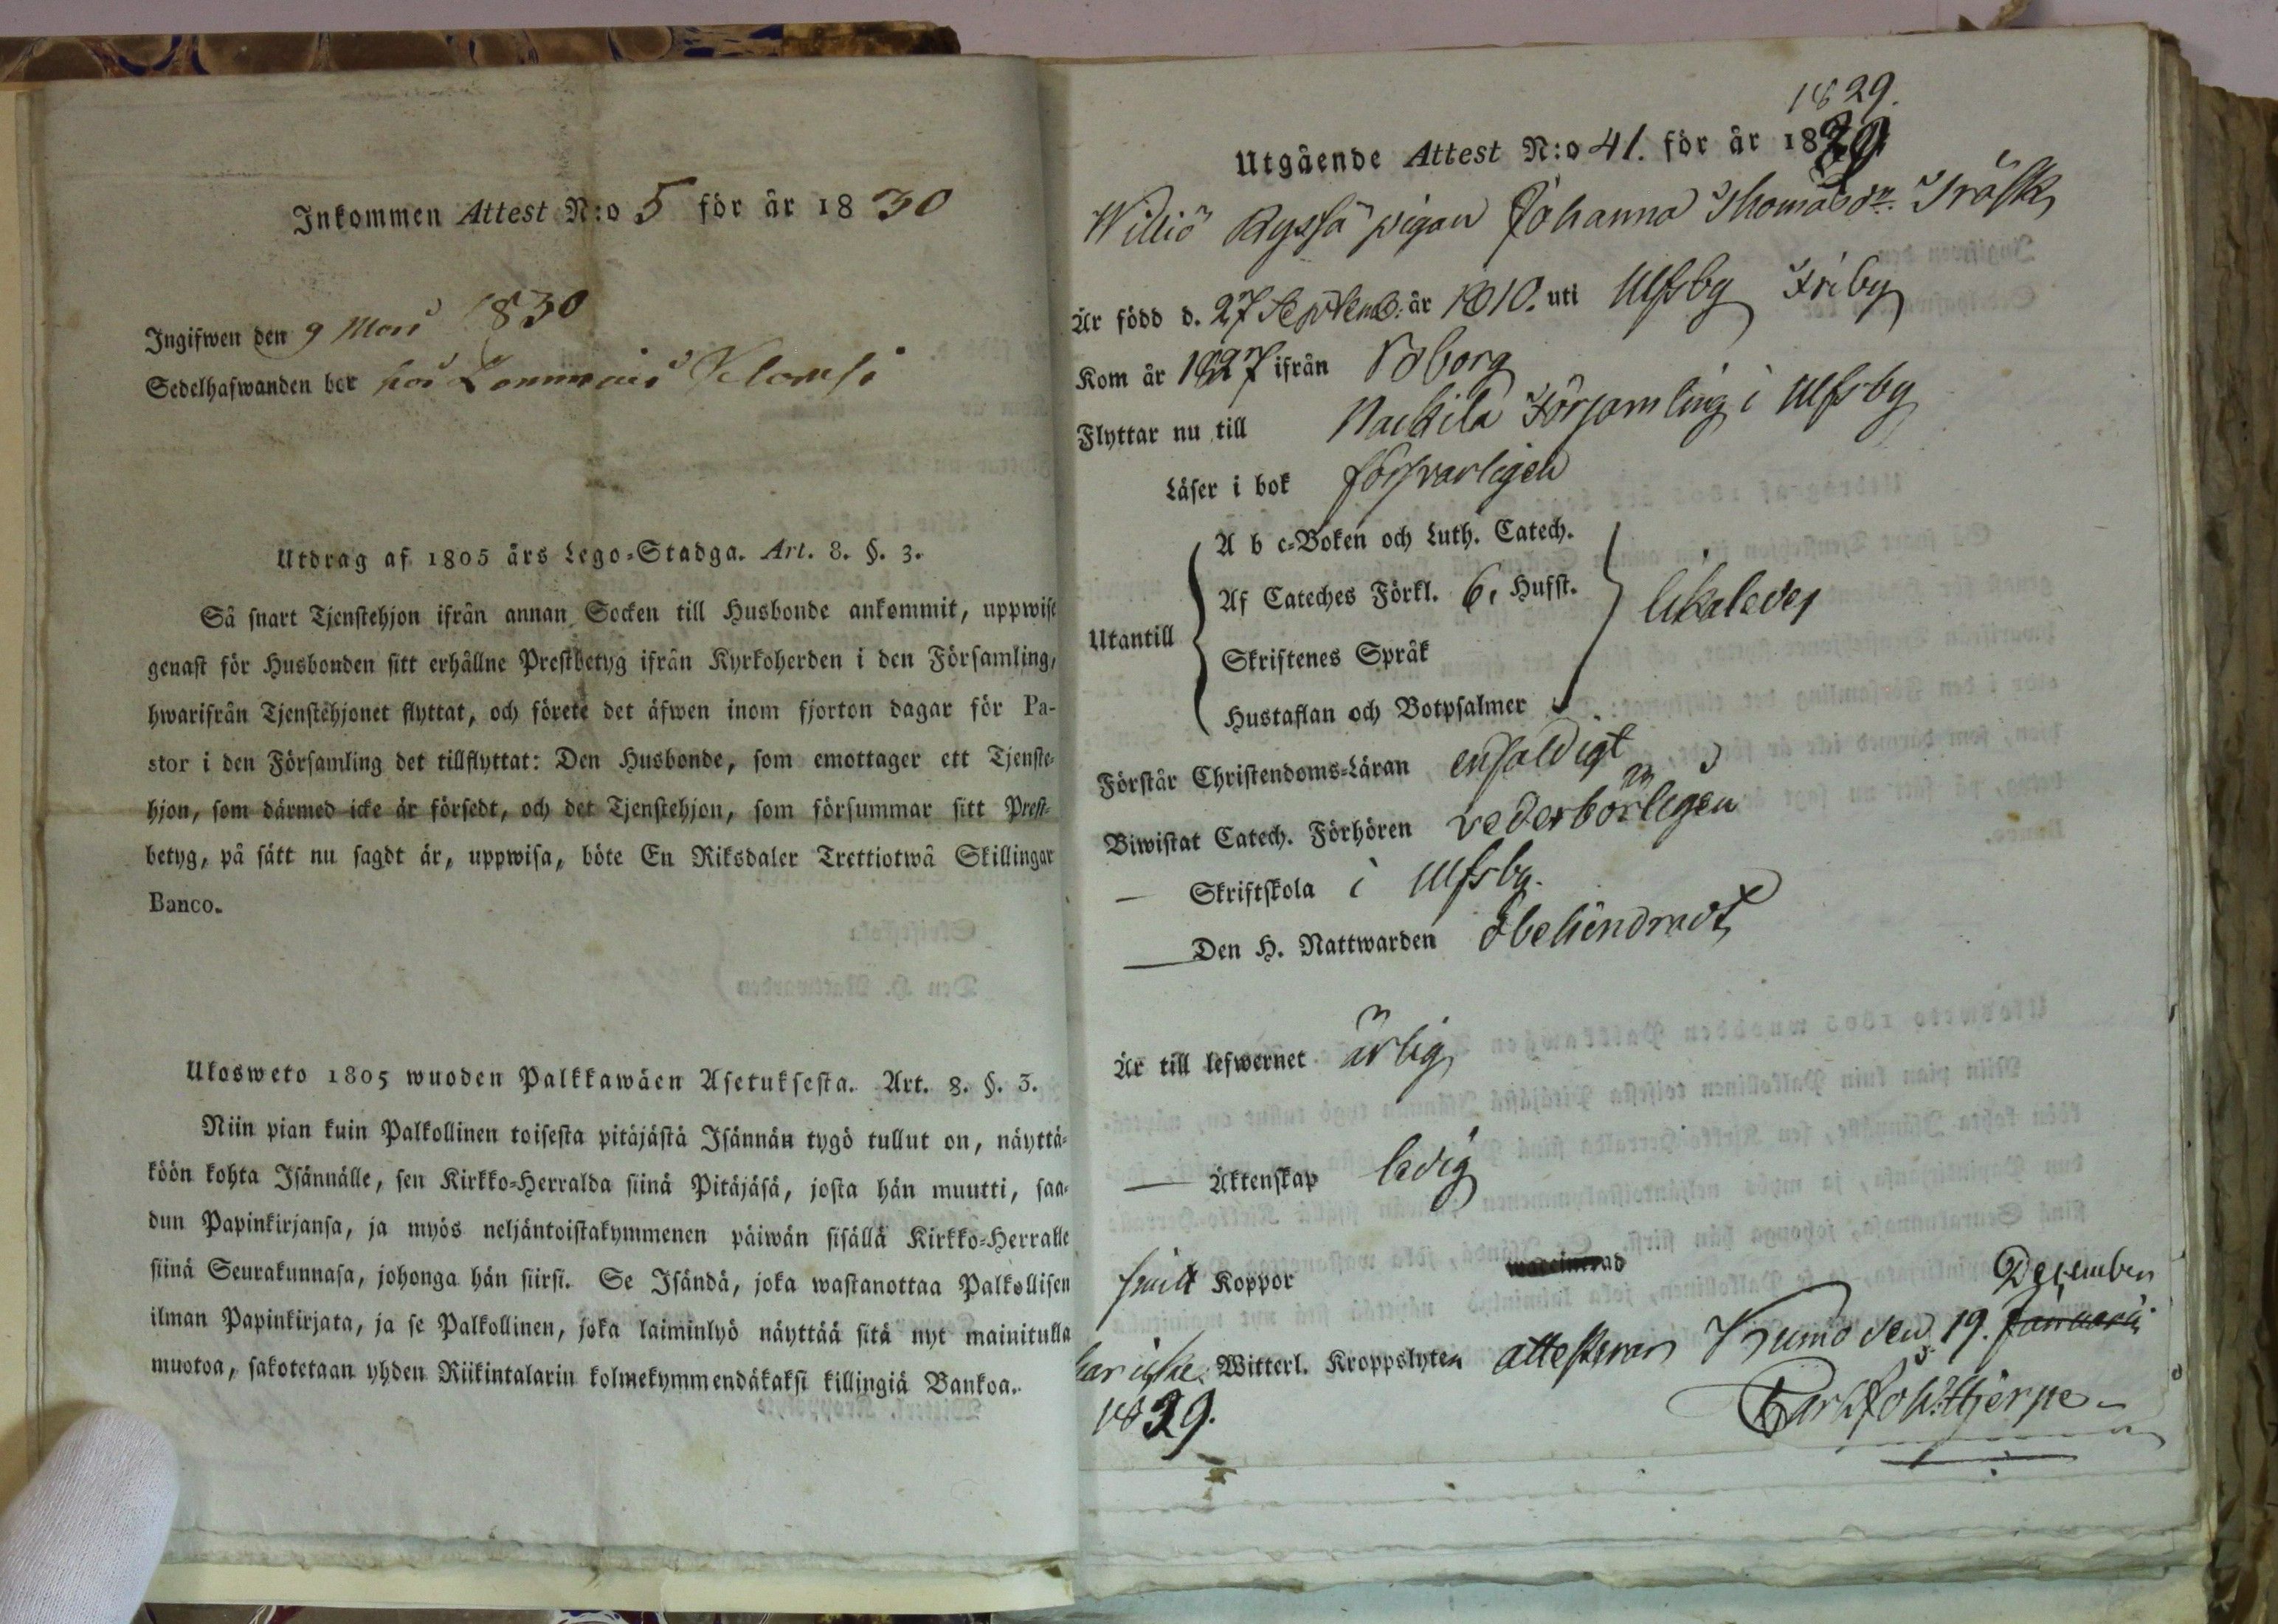 Inkommen Attest N:o 5 för år 1830
Ingifwen den 9 Mars 1830
Sedelhafwanden bor hos
Utdrag af 1805 års Lego-Stadga. Art. 8. §. 3.
Så snart Tjenstehjon ifrån annan Socken till Husbonde ankommit, uppwise
genast för Husbonden sitt erhållne Prestbetyg ifrån Kyrkoherden i den Församling,
hwarifrån Tjenstehjonet flyttat, och förete det äfwen inom fjorton dagar för Pa-
stor i den Församling det tillflyttat: Den Husbonde, som emottager ett Tjenste-
hjon, som därmed icke är försedt, och det Tjenstehjon, som försummar sitt Prest-
betyg, på sätt nu sagdt är, uppwisa, böte En Riksdaler Trettiotwå Skillingar
Banco.
Ulosweto 1805 wuoden Palkkawäen Asetuksesta. Art. 8. §. 3.
Niin pian kuin Palkollinen toisesta pitäjästä Isännän tygö tullut on, näyttä-
köön kohta Isännälle, sen Kirkko-Herralda siinä Pitäjäsä, josta hän muutti, saa-
dun Papinkirjansa, ja myös neljäntoistakymmenen päiwän sisällä Kirkko-Herralle
siinä Seurakunnasa, johonga hän siirsi. Se Isändä, joka wastanottaa Palkollisen
ilman Papinkirjata, ja se Palkollinen, joka laiminlyö näyttää sitä nyt mainitulla
muotoa, sakotetaan yhden Riikintalarin kolmekymmendäkaksi killingiä Bankoa.
1829.
Utgående Attest N:o 41. för år 1829
Williö Ryssä pigan Johanna Thomasdr. Träsk
Är född d. 27 Septemb. år 1810. uti Ulfsby Friby
Kom år 1827 ifrån Noborg
Flyttar nu till Nackila Församling i Ulfsby
Läser i bok försvarligen
A b c-Boken och Luth. Catech.
Af Cateches Förkl. 6, Hufst.
Utantill
likaledes
Skriftenes Språk
Hustaflan och Botpsalmer
Förstår Christendoms-Läran enfaldigt
Biwistat Catech. Förhören vederbörligen
— Skriftskola i Ulfsby.
— Den H. Nattwarden obehindradt
Är till lefwernet ärlig
— Äktenskap ledig
haft Koppor
December
har icke Witterl. Kroppslyten attesterar Kumo den 19. Januarii
1829.
Carl Joh. Hjerpe